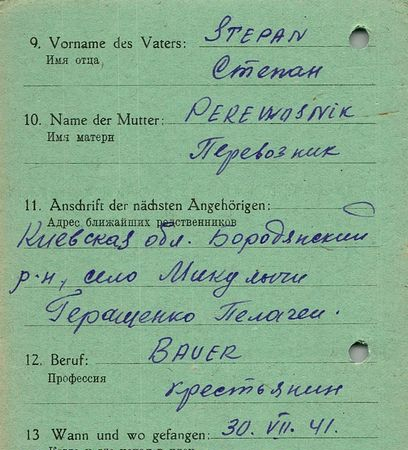 9. Vorname des Vaters: STEPAN
Имя отца
Степан
10. Name der Mutter: PEREWOSNIK
Имя матери
Перевозник
11. Anschrift der nächsten Angehörigen:
Адрес ближайших родственников
Киевская обл. Бородянский
р-н, село Микулычи
Геращенко Пелагеи.
12. Beruf: BAUER
Профессия
крестьянин
13 Wann und wo gefangen: 30. VII. 41.